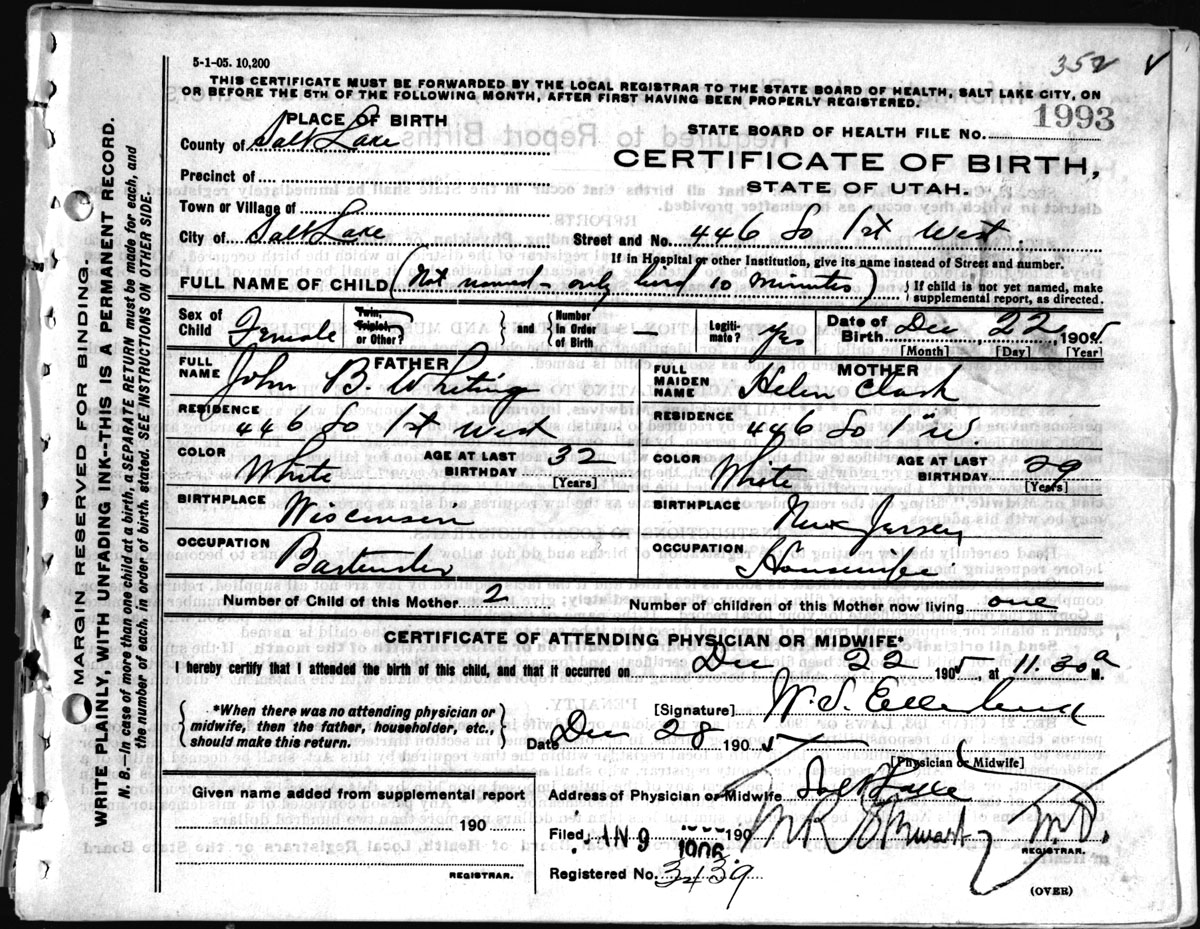 5-1-05. 10,200
352 ✓
THIS CERTIFICATE MUST BE FORWARDED BY THE LOCAL REGISTRAR TO THE STATE BOARD OF HEALTH, SALT LAKE CITY, ON
OR BEFORE THE 5TH OF THE FOLLOWING MONTH, AFTER FIRST HAVING BEEN PROPERLY REGISTERED.
PLACE OF BIRTH
STATE BOARD OF HEALTH FILE NO. 1993
County of Salt Lake
CERTIFICATE OF BIRTH,
Precinct of
STATE OF UTAH.
Town or Village of
City of Salt Lake Street and No. 446 So 1st West.
If in Hospital or other Institution, give its name instead of Street and number.
FULL NAME OF CHILD (Not named - only lived 10 minutes) If child is not yet named, make supplemental report, as directed.
Sex of Child Female Twin, Triplet, or Other? and Number in Order of Birth — Legitimate? yes Date of Birth Dec 22 1905
[Month] [Day] [Year]
FATHER
FULL NAME John B. Whiting
MOTHER
FULL MAIDEN NAME Helen Clark
RESIDENCE 446 So 1st West
RESIDENCE 446 So 1" W.
COLOR White AGE AT LAST BIRTHDAY 32 [Years]
COLOR White AGE AT LAST BIRTHDAY 29 [Years]
BIRTHPLACE Wisconsin
BIRTHPLACE New Jersey
OCCUPATION Bartender
OCCUPATION Housewife
Number of Child of this Mother 2 Number of children of this Mother now living one
CERTIFICATE OF ATTENDING PHYSICIAN OR MIDWIFE*
I hereby certify that I attended the birth of this child, and that it occurred on Dec 22 1905, at 11.30 a M.
*When there was no attending physician or
midwife, then the father, householder, etc.,
should make this return.
[Signature] W. S.
Date Dec 28 1905
[Physician or Midwife]
Given name added from supplemental report
190
REGISTRAR.
Address of Physician or Midwife Salt Lake
Filed JAN 9 1906 190 M.D.
REGISTRAR.
Registered No. 3139
(OVER)
MARGIN RESERVED FOR BINDING
WRITE PLAINLY, WITH UNFADING INK--THIS IS A PERMANENT RECORD.
N. B.—In case of more than one child at a birth, a SEPARATE RETURN must be made for each, and
the number of each, in order of birth, stated. SEE INSTRUCTIONS ON OTHER SIDE.